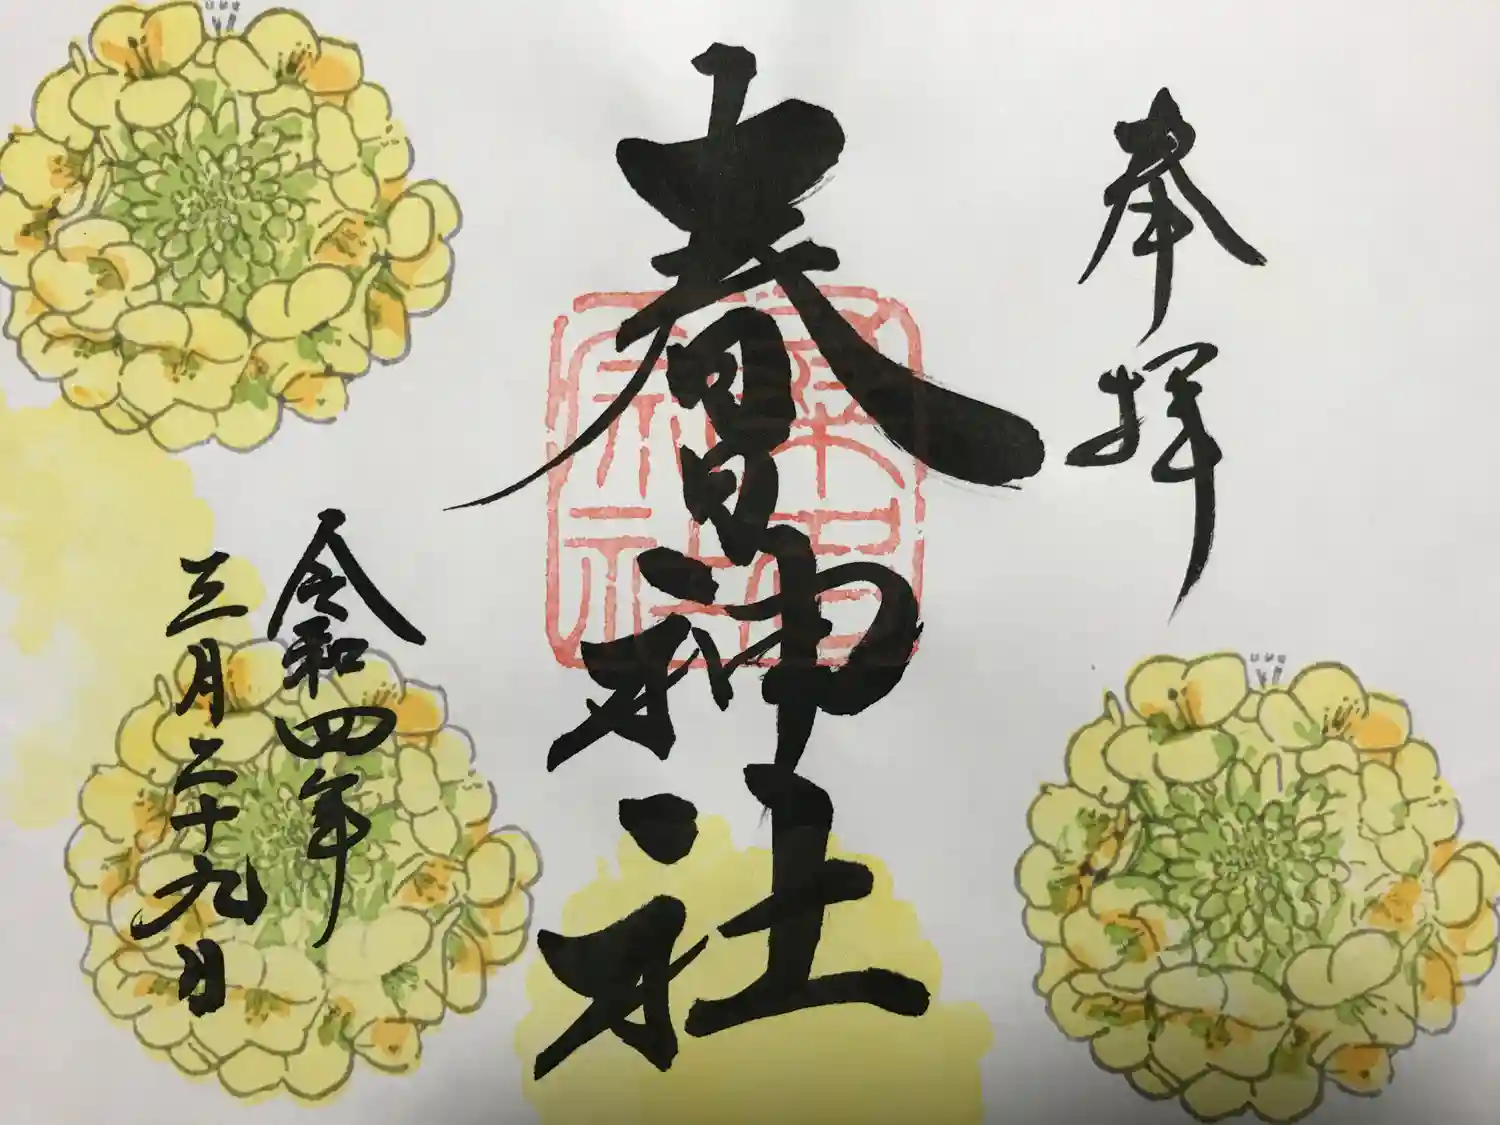 奉拝
春日神社
令和四年
三月二十九日